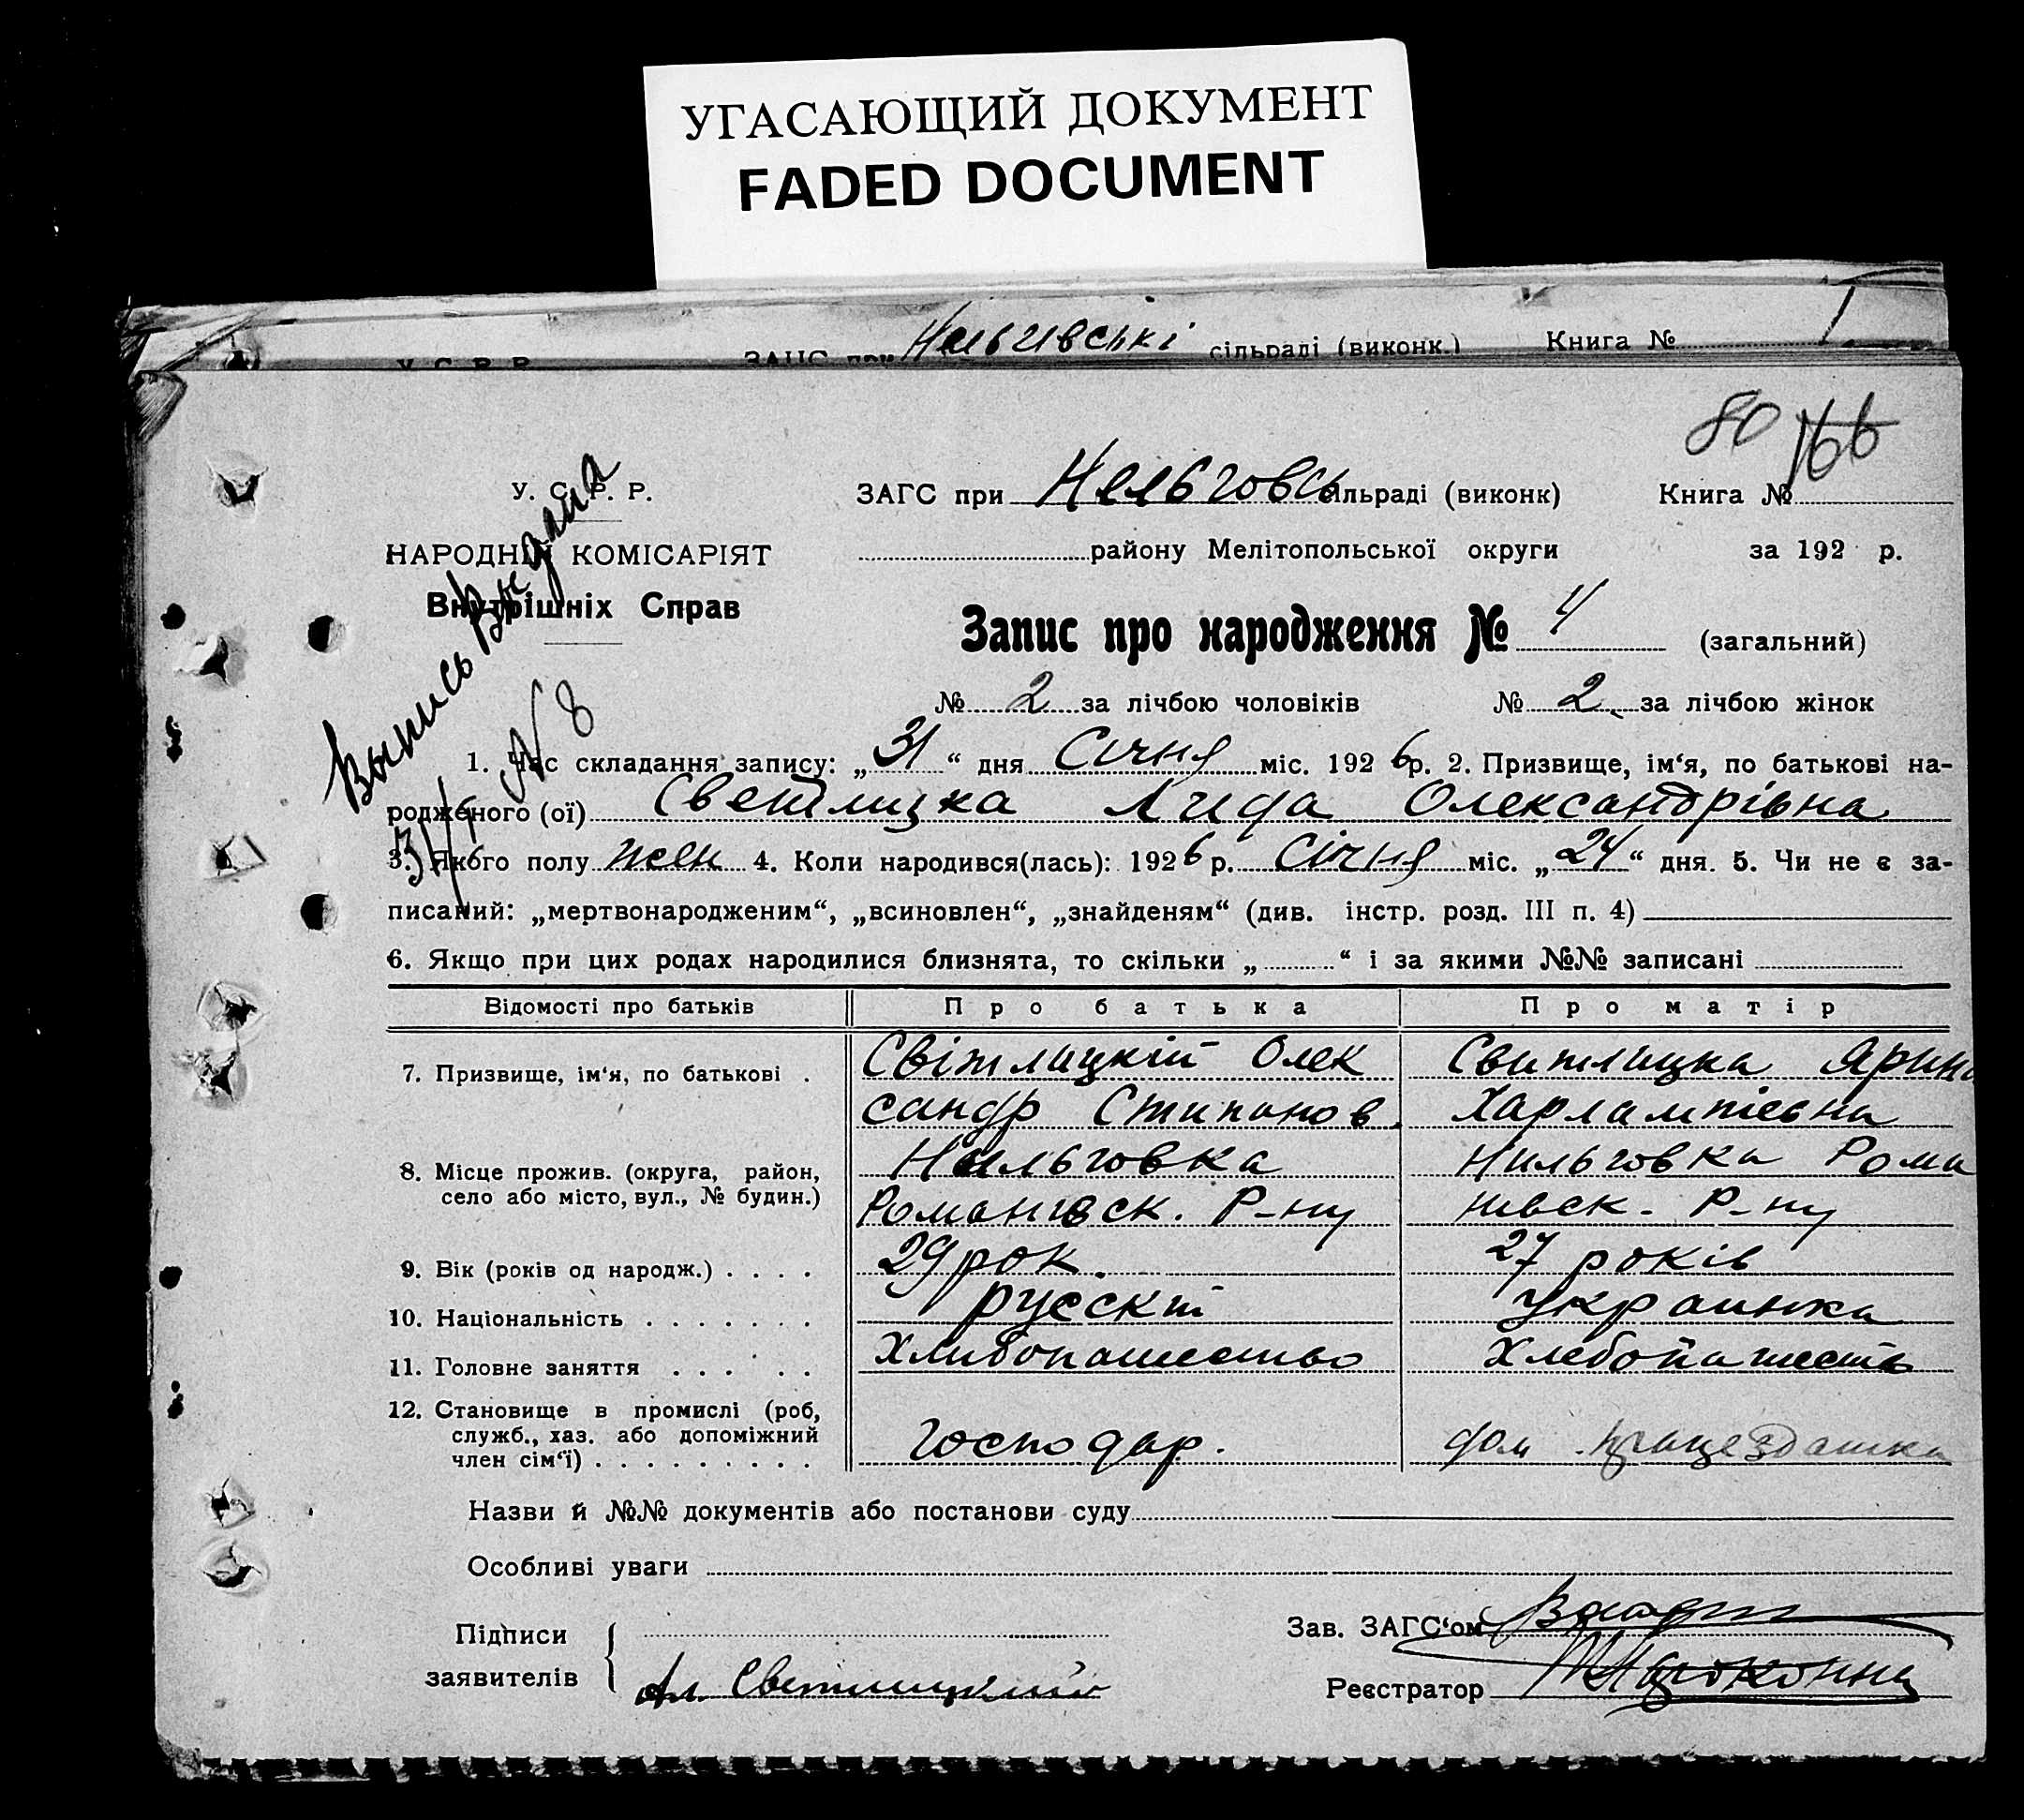 УГАСАЮЩИЙ ДОКУМЕНТ
FADED DOCUMENT
У. С. Р. Р. ЗАГС при Нельгивські сільраді (виконк.) Книга №
80 166
У. С. Р. Р. ЗАГС при Нельговсь сільраді (виконк) Книга №
НАРОДНІЙ КОМІСАРІЯТ району Мелітопольської округи за 192 р.
Внутрішніх Справ
Выпись Выдана
31/I N 8
Запис про народження № 4 (загальний)
№ 2 за лічбою чоловіків № 2 за лічбою жінок
1. Час складання запису: „31“ дня Січня міс. 1926р. 2. Призвище, ім‘я, по батькові на-
родженого (ої) Светлицка Лида Олександрівна
3. Якого полу жен 4. Коли народився(лась): 1926 р. Січня міс. „24“ дня. 5. Чи не є за-
писаний: „мертвонародженим“, „всиновлен“, „знайденям“ (див. інстр. розд. III п. 4)
6. Якщо при цих родах народилися близнята, то скільки „ “ і за якими №№ записані
Відомості про батьків Про батька Про матір
7. Призвище, ім‘я, по батькові . Світлицкій Олек Свитлицка Ярин
сандр Стипанов. Харлампієвна
8. Місце прожив. (округа, район, Нильговка Нильговка Рома
село або місто, вул., № будин.) Романівск. Р-ну нивск. Р-ну
9. Вік (років од народж.) . . . . 29 рок. 27 років
10. Національність . . . . . . . русскій Украинка
11. Головне заняття . . . . . Хлибопашество Хлебопашеств
12. Становище в промислі (роб,
служб., хаз. або допоміжний Господар. дом. працездатна
член сім‘ї) . . . . . . . . .
Назви й №№ документів або постанови суду
Особливі уваги
Підписи Зав. ЗАГС‘ом
заявителів Ал. Светлицкий Реєстратор